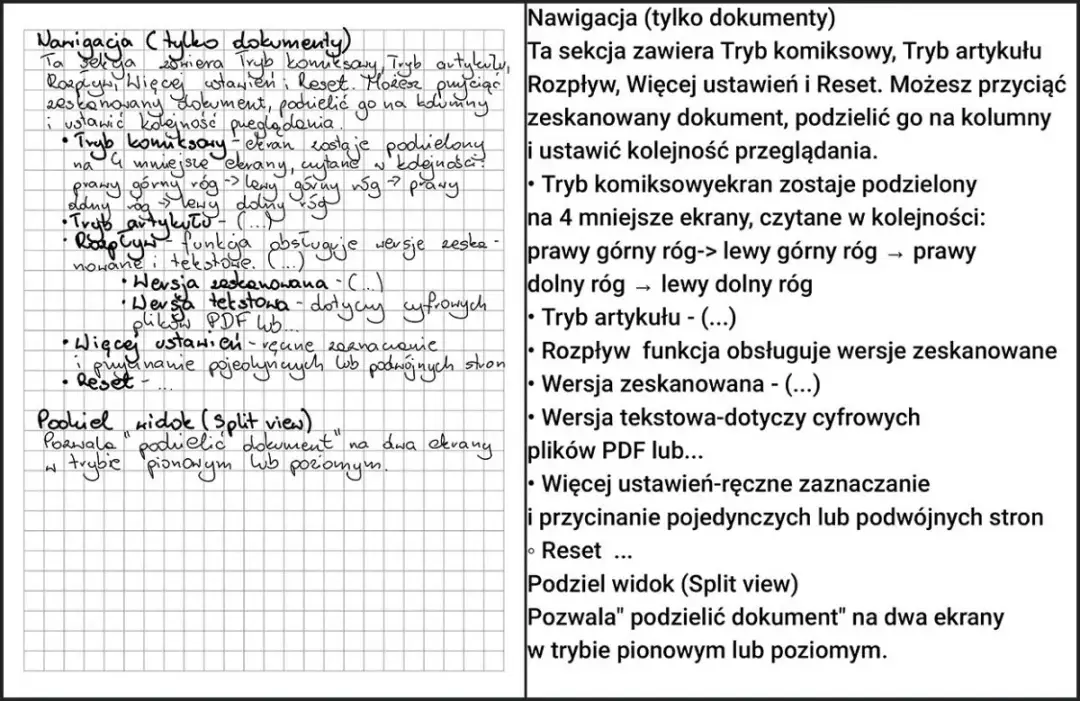 Nawigacja (tylko dokumenty)
Ta sekcja zawiera Tryb komiksowy, Tryb artykułu,
Rozpływ, Więcej ustawień i Reset. Możesz przyciąć
zeskanowany dokument, podzielić go na kolumny
i ustawić kolejność przeglądania.
• Tryb komiksowy - ekran zostaje podzielony
na 4 mniejsze ekrany, czytane w kolejności:
prawy górny róg -> lewy górny róg -> prawy
dolny róg -> lewy dolny róg
• Tryb artykułu - (...)
• Rozpływ - funkcja obsługuje wersje zeska-
nowane i tekstowe. (...)
• Wersja zeskanowana - (...)
• Wersja tekstowa - dotyczy cyfrowych
plików PDF lub...
• Więcej ustawień - ręczne zaznaczanie
i przycinanie pojedynczych lub podwójnych stron
• Reset - ...
Podziel widok (Split view)
Pozwala "podzielić dokument" na dwa ekrany
w trybie pionowym lub poziomym.
Nawigacja (tylko dokumenty)
Ta sekcja zawiera Tryb komiksowy, Tryb artykułu
Rozpływ, Więcej ustawień i Reset. Możesz przyciąć
zeskanowany dokument, podzielić go na kolumny
i ustawić kolejność przeglądania.
• Tryb komiksowyekran zostaje podzielony
na 4 mniejsze ekrany, czytane w kolejności:
prawy górny róg-> lewy górny róg → prawy
dolny róg → lewy dolny róg
• Tryb artykułu - (...)
• Rozpływ  funkcja obsługuje wersje zeskanowane
• Wersja zeskanowana - (...)
• Wersja tekstowa-dotyczy cyfrowych
plików PDF lub...
• Więcej ustawień-ręczne zaznaczanie
i przycinanie pojedynczych lub podwójnych stron
◦ Reset  ...
Podziel widok (Split view)
Pozwala" podzielić dokument" na dwa ekrany
w trybie pionowym lub poziomym.